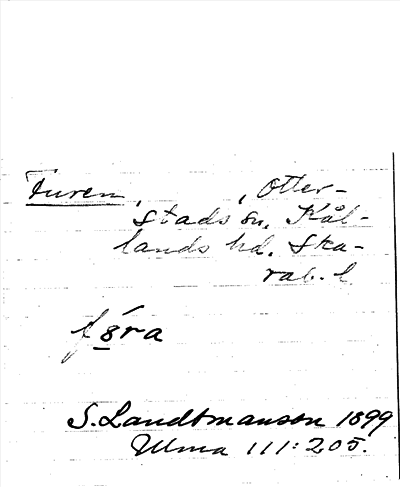 Furen, , Otter-
stads sn, Kål-
lands hd. Ska-
rab. l.
S. Landtmanson 1899
Ulma 111:205.